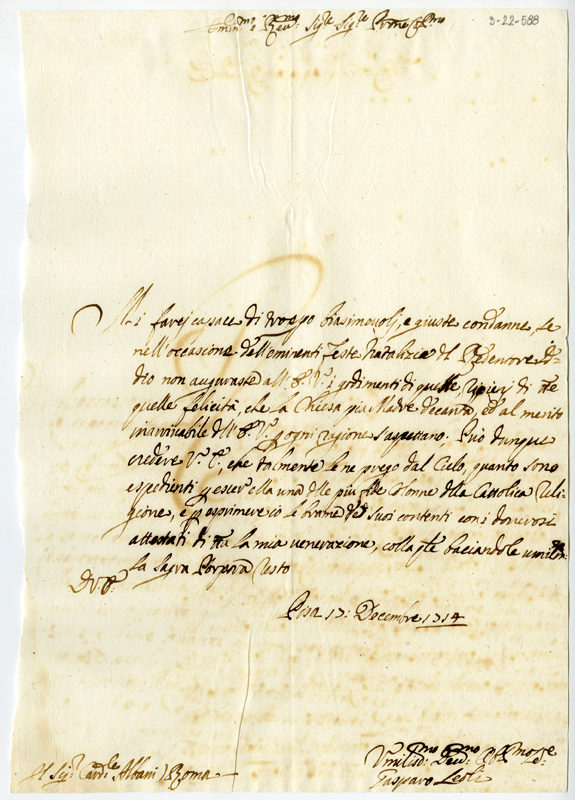 3-22-588
Emin.mo e Rev.mo Sig.re Sig.re Prone Col.mo
Mi farej capace di troppo biasimeuolj, e giuste condanne, se
nell'occasione dell'eminenti feste Natalizie del Redentore Id-
dio non augurasse all' E. V. i godimenti di quelle, ripieni di tte
quelle felicità, che la Chiesa pia Madre decanta, ed al merito
inarriuabile dell' E. V. p ogni ragione s'aspettano. Può dunque
credere V. E., che talmente le ne prego dal Cielo, quanto sono
espedienti p esser ella una delle più fide Colonne della Cattolica Reli-
gione, e p esprimere ciò le brame de suoi contenti con i doverosi
attestati di tta la mia uenerazione, colla qle baciandole umilm.te
la sagra Porpora resto
D. V. E.
Pisa 17: Decembre 1714
Umiliss.mo Deu.mo Obl.mo Ser.re
Gasparo
Al Sig.r Card.le Albani) Roma